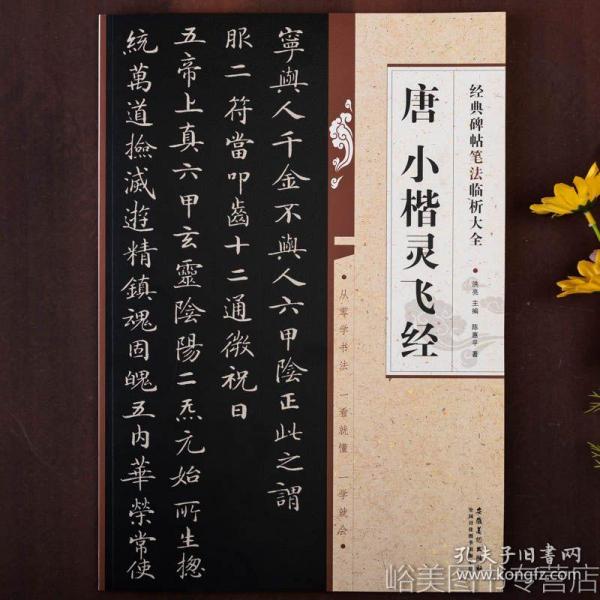 寧與人千金不與人六甲陰正此之謂
服二符當叩齒十二通微祝曰
五帝上真六甲玄靈陰陽二炁元始所生揔
統萬道撿滅遊精鎮魂固魄五内華榮常使
经典碑帖笔法临析大全
唐 小楷灵飞经
洪亮 主编 陈惠平 著
•从零学书法 一看就懂 一学就会•
孔夫子旧书网
www.kongfz.com
峪美图书专营店